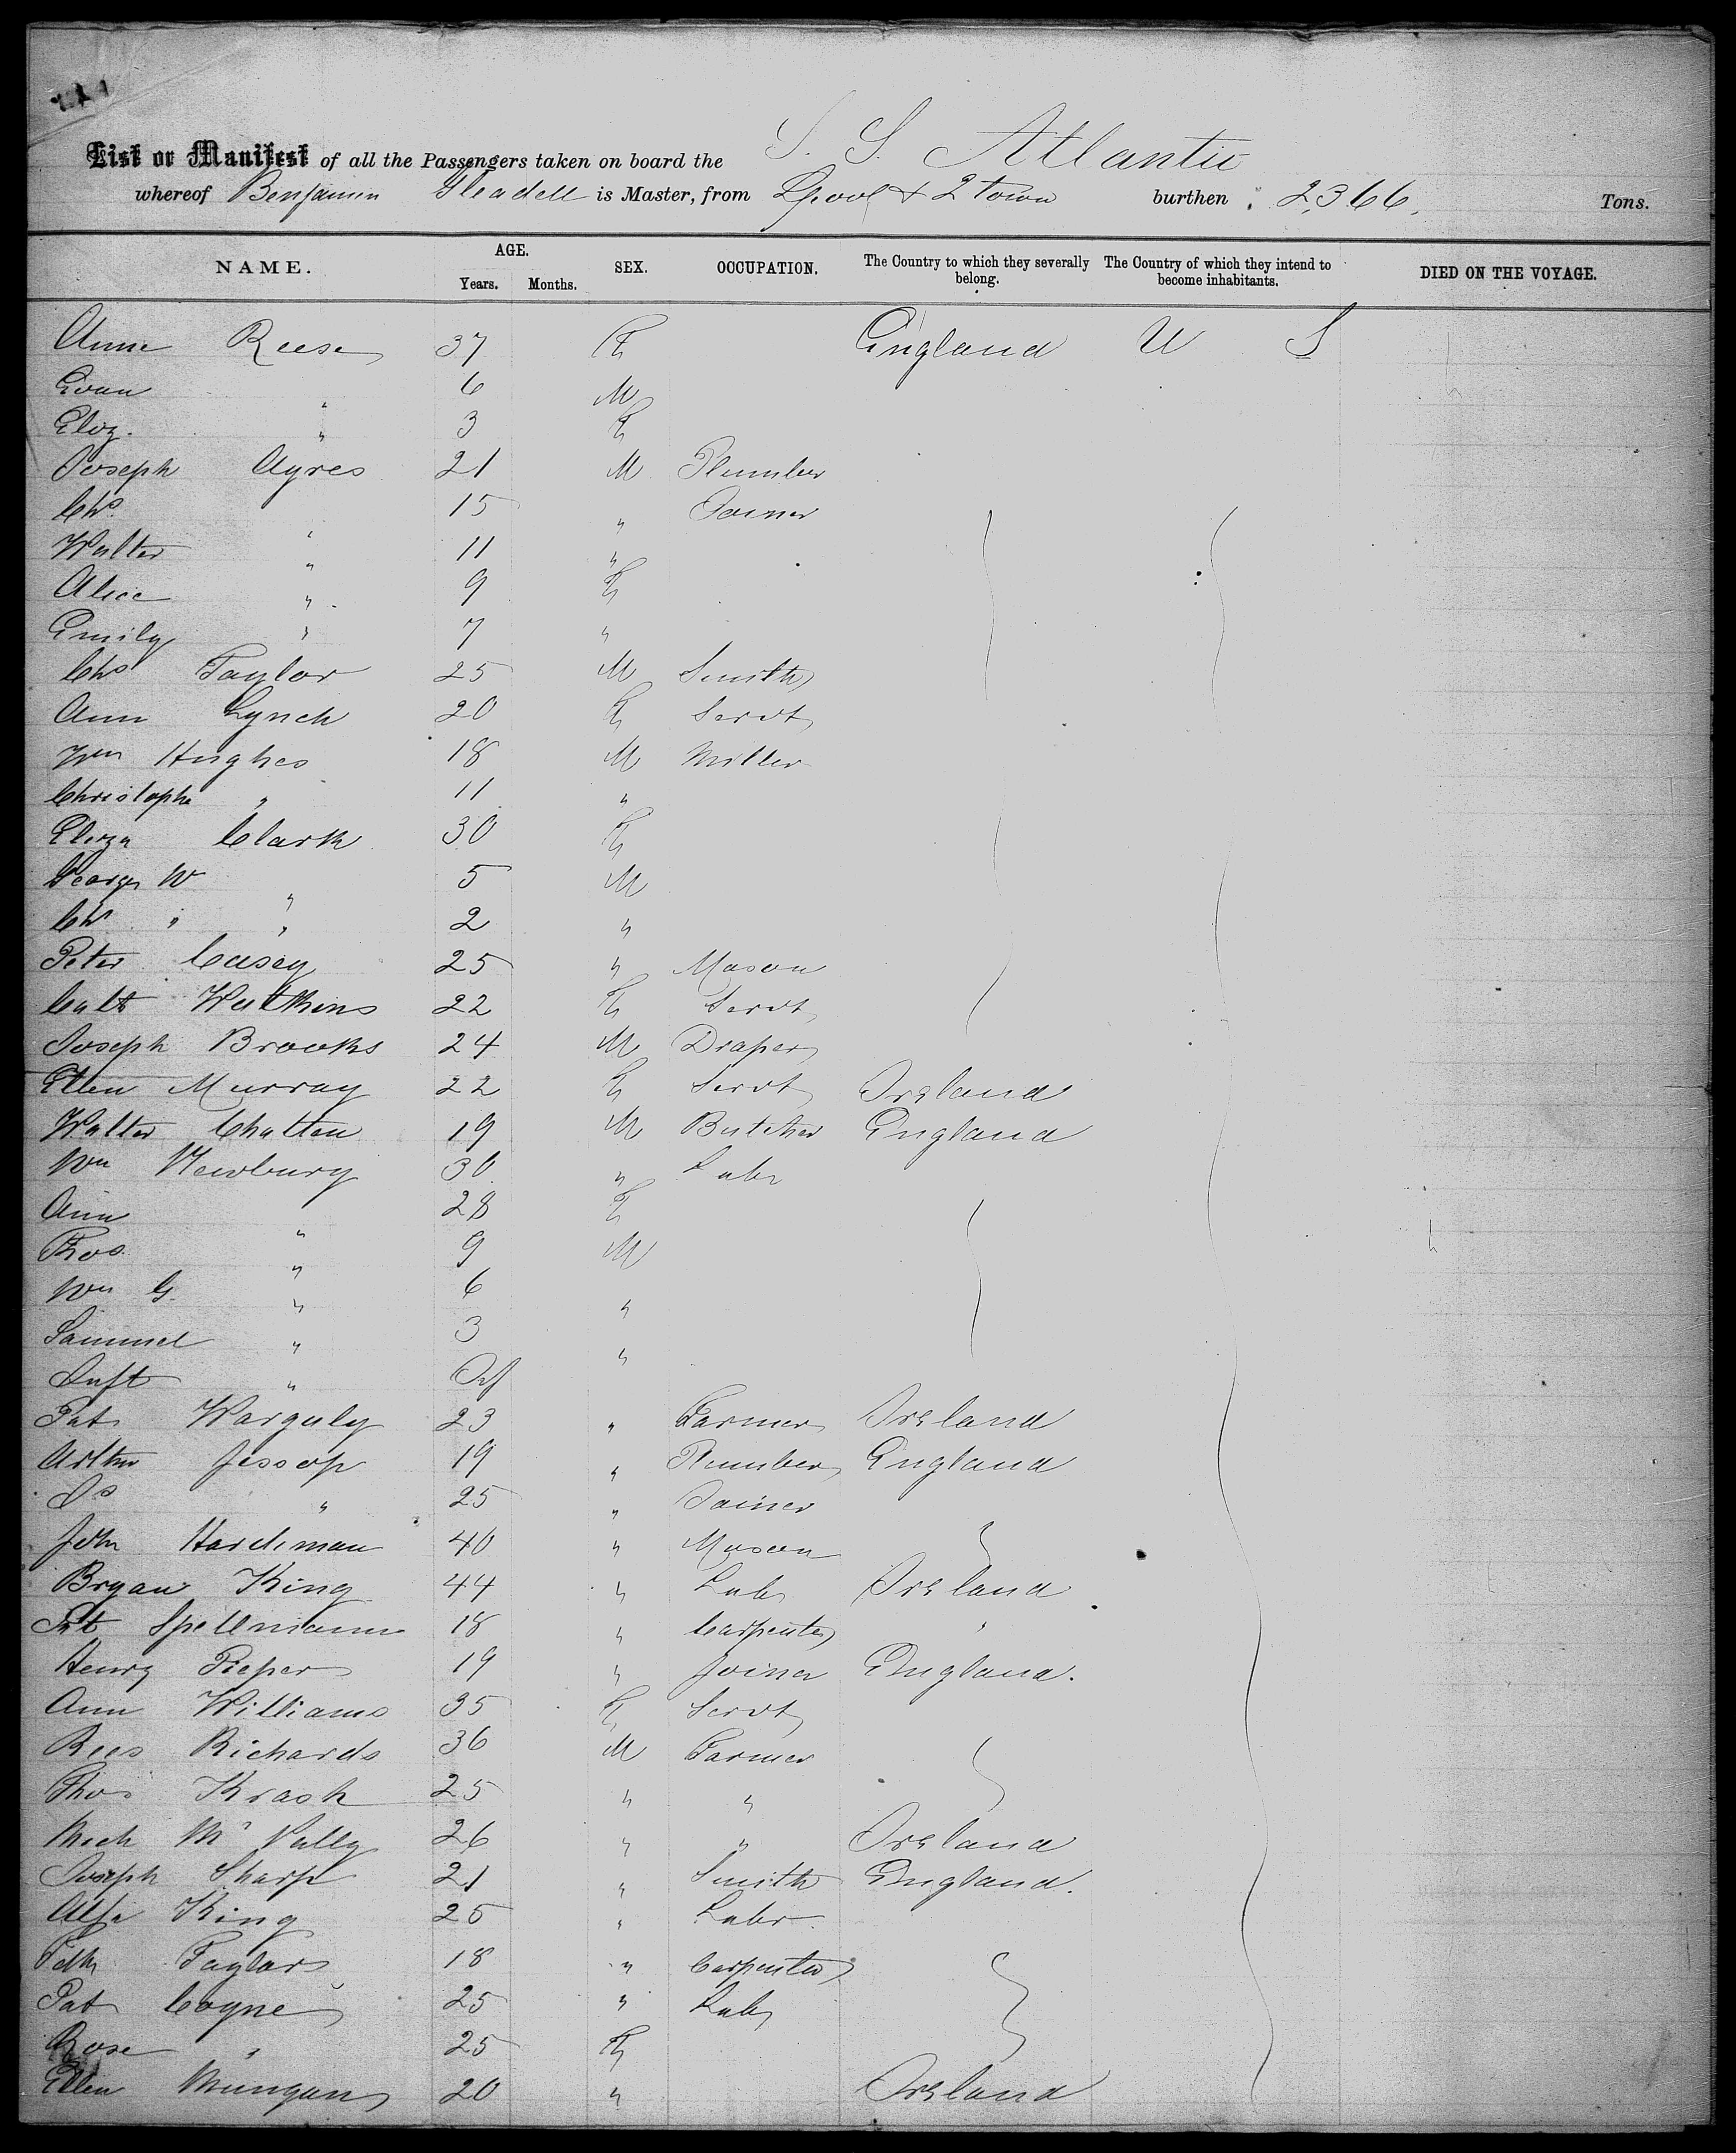 List or Manifest of all the Passengers taken on board the S. S. Atlantic
whereof Benjamin Gleadell is Master, from Lpool & 2 town burthen 2366. Tons.
NAME. AGE. Years. Months. SEX. OCCUPATION. The Country to which they severally belong. The Country of which they intend to become inhabitants. DIED ON THE VOYAGE.
Anne Reese 37 F England U S
Evan " 6 M
Eliz. " 3 F
Joseph Ayres 21 M Plumber
Chs " 15 " Joiner
Walter " 11 "
Alice " 9 F
Emily " 7 "
Chs Taylor 25 M Smith
Ann Lynch 20 F Servt
Wm Hughes 18 M Miller
Christophe " 11 "
Eliza Clark 30 F
George W " 5 M
Chs " " 2 "
Peter Casey 25 " Mason
Watkins 22 F Servt
Joseph Brooks 24 M Draper
Ellen Murray 22 F Servt Ireland
Walter Chatten 19 M Butcher England
Wm Newbury 30 " Labr
Ann " 28 F
Thos " 9 M
Wm G. " 6 "
Samuel " 3 "
Inft "
Pat 23 " Farmer Ireland
Arthur Jessop 19 " Plumber England
Js " 25 " Joiner
John Hardiman 40 " Mason
Bryan King 44 " Lab Ireland
Pat Spellmann 18 " Carpenter "
Henry Pieper 19 " Joiner England.
Ann Williams 35 F Servt
Rees Richards 36 M Farmer
Thos Krash 25 " "
Mich 26 " " Ireland
Joseph Sharp 21 " Smith England.
King 25 " Labr
Taylor 18 " Carpenter
Pat Coyne 25 " Lab
Rose " 25 F
Ellen Mungan 20 " Ireland